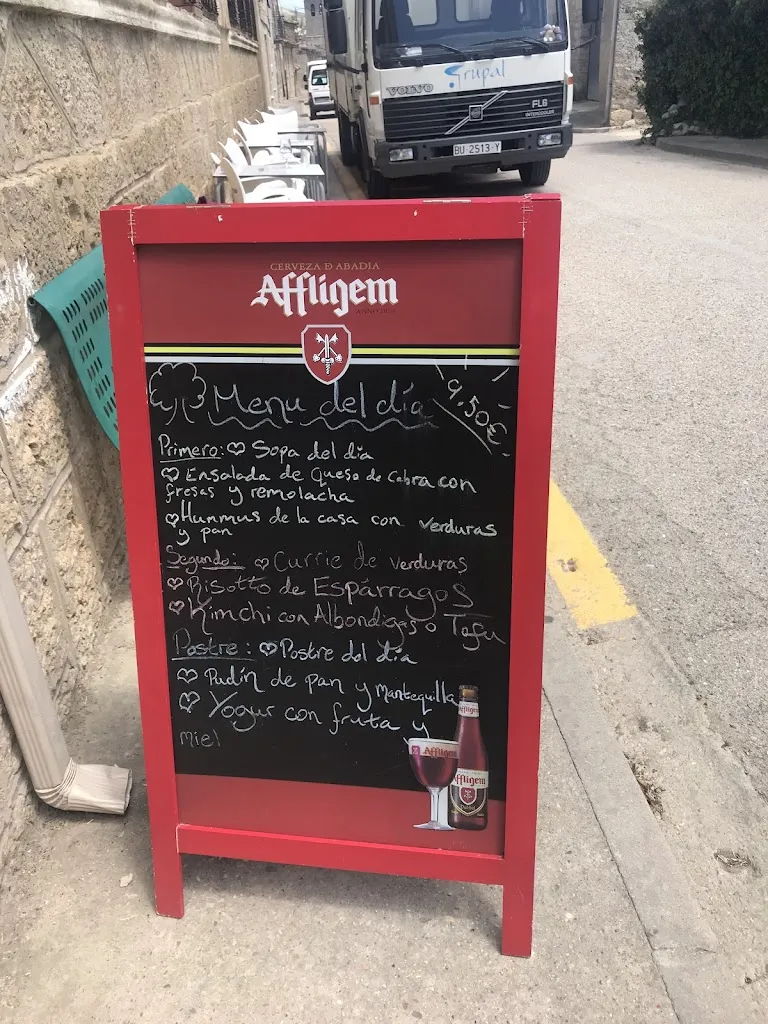 Grupal
VOLVO
FL6
INTERCOOLER
BU-2513-Y
CERVEZA D ABADIA
Affligem
Menu del día
9.50€
Primero: Sopa del día
Ensalada de Queso de Cabra con
fresas y remolacha
Hummus de la casa con verduras
y pan
Segundo: Currie de verduras
Risotto de Espárragos
Kimchi con Albondigas o Tofu
Postre: Postre del día
Pudin de pan y Mantequilla
Yogur con fruta y
miel
Affligem
Affligem
Affligem